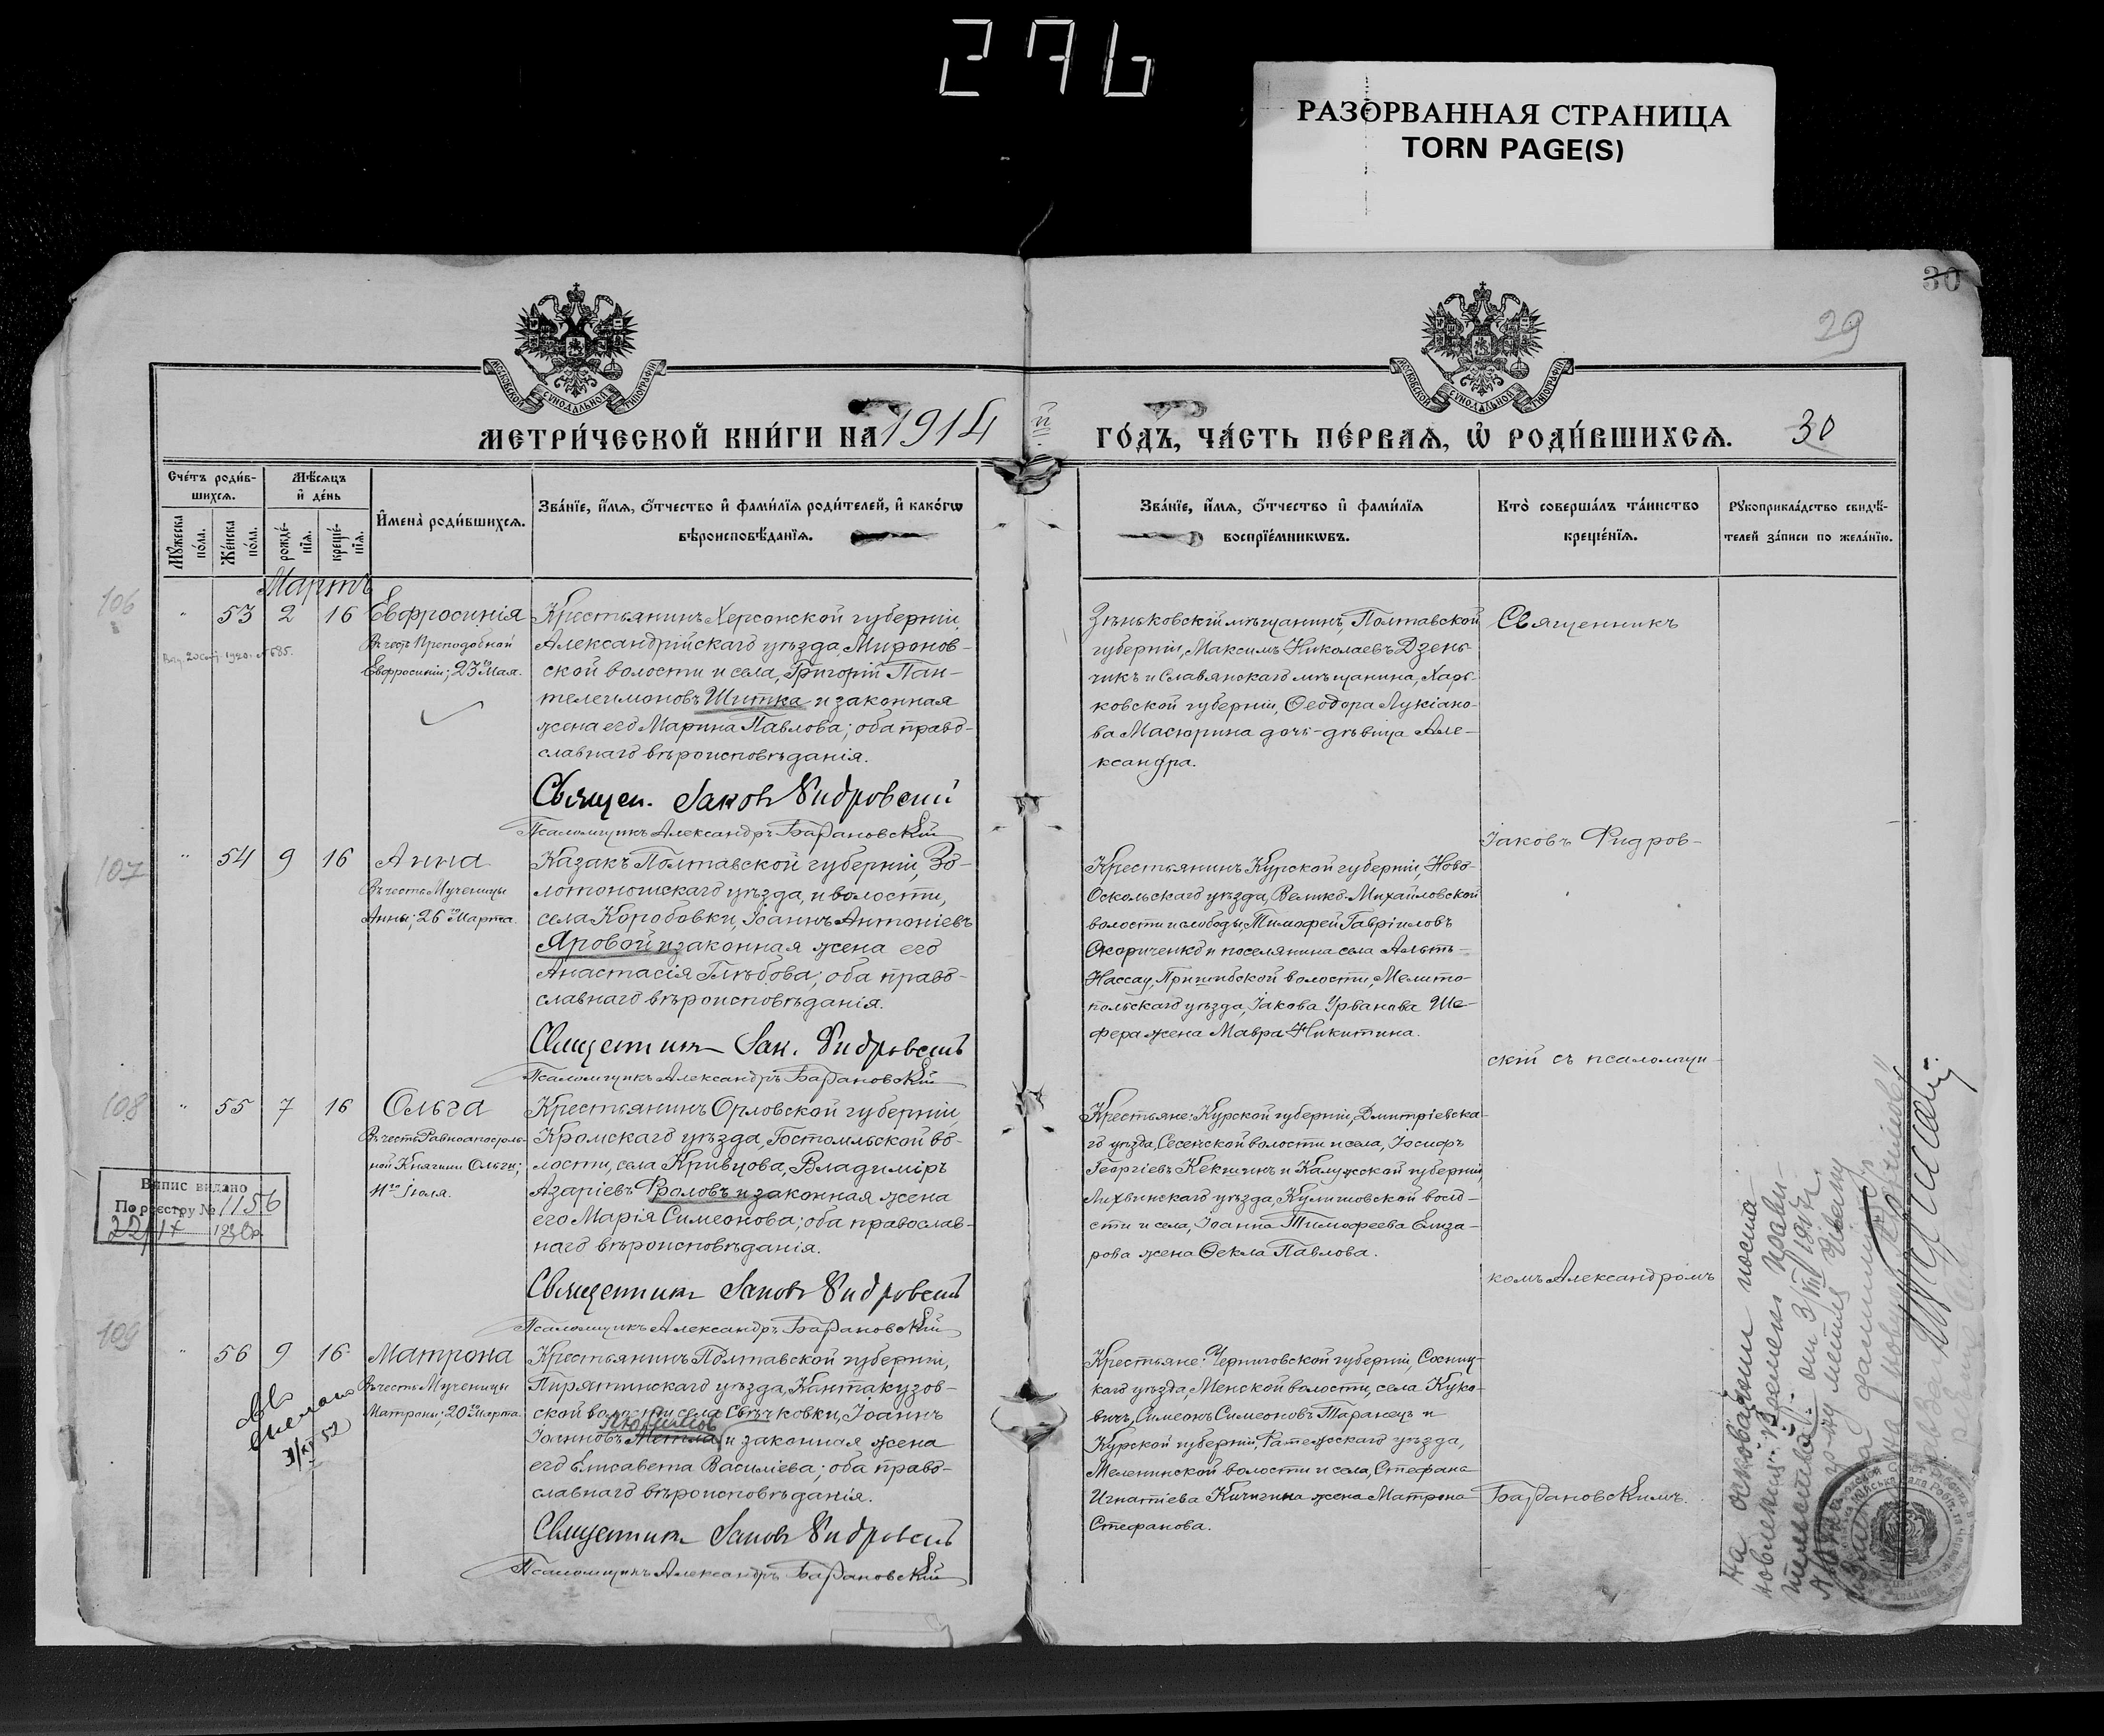 276
РАЗОРВАННАЯ СТРАНИЦА
TORN PAGE(S)
30
29
МОСКОВСКОЙ СУНОДАЛЬНОЙ ТИПОГРАФІИ
МОСКОВСКОЙ СУНОДАЛЬНОЙ ТИПОГРАФІИ
МЕТРИ́ЧЕСКОЙ КНИ́ГИ НА 1914 й ГО́ДЪ, ЧА́СТЬ ПЕ́РВАЯ, Ѡ РОДИ́ВШИХСЯ. 30
Сче́тъ роди́в-
шихся.
Мѣ́сяцъ
и де́нь
Мꙋ́жеска по́ла.
Же́нска по́ла.
рожде́-
нїя.
креще́-
нїя.
И҆мена̀ роди́вшихся.
Зва́нїе, и҆́мя, ѻ҆́тчество и҆ фами́лїя роди́телей, и҆ како́гѡ
вѣроисповѣ́данїя.
Зва́нїе, и҆́мя, ѻ҆́тчество и҆ фами́лїя
воспрїе́мникѡвъ.
Кто̀ соверша́лъ та́инство
креще́нїя.
Рꙋкоприкла́дство свидѣ́-
телей за́писи по жела́нїю.
Мартъ
106
" 53 2 16 Евфросинія
Въ честь Преподобной
Евфросиніи; 25го Мая.
Крестьянинъ Херсонской губерніи,
Александрійскаго уѣзда, Миронов-
ской волости и села, Григорій Пан-
телеимоновъ Шитка и законная
жена его Марина Павлова; оба право-
славнаго вѣроисповѣданія.
Священ. Іаковъ Ѳидровскій
Псаломщикъ Александръ Барановскій
Зѣньковскій мѣщанинъ, Полтавской
губерніи, Максимъ Николаевъ Дзень
чикъ и Славянскаго мѣщанина, Харь-
ковской губерніи, Ѳеодора Лукіано-
ва Масюрина дочь-дѣвица Але-
ксандра.
Священникъ
107
" 54 9 16 Анна
Въ честь Мученицы
Анны; 26го Марта.
Казакъ Полтавской губерніи, Зо-
лотоношскаго уѣзда, и волости,
села Коробовки, Іоаннъ Антоніевъ
Яровой и законная жена его
Анастасія Глѣбова; оба право-
славнаго вѣроисповѣданія.
Священникъ Іак. Ѳидровскій
Псаломщикъ Александръ Барановскій
Крестьянинъ Курской губерніи, Ново-
Оскольскаго уѣзда, Велико-Михайловской
волости и слободы, Тимофей Гавріиловъ
и поселянина села Альтъ-
Нассау, Пришибской волости, Мелито-
польскаго уѣзда, Іакова Урванова Ше-
фера жена Мавра Никитина.
Іаковъ Фидров-
скій съ псаломщи-
108
" 55 7 16 Ольга
Въ честь Равноапостоль-
ной Княгини Ольги;
11го Іюля.
Крестьянинъ Орловской губерніи,
Кромскаго уѣзда, Гостомльской во-
лости, села Кривцова, Владиміръ
Азаріевъ Фроловъ и законная жена
его Марія Симеонова; оба православ-
наго вѣроисповѣданія.
Священникъ Іаковъ Ѳидровскій
Псаломщикъ Александръ Барановскій
Крестьяне: Курской губерніи, Дмитріевска-
го уѣзда, Сесенской волости и села, Іосифъ
Георгіевъ Кекшинъ и Калужской губерніи,
Лихвинскаго уѣзда, Кулишовской воло-
сти и села, Іоанна Тимофеева Елиза-
рова жена Ѳекла Павлова.
комъ Александромъ
Випис видано
По реєстру № 1156
109
" 56 9 16 Матрона
Въ честь Мученицы
Матроны; 20го Марта.
Крестьянинъ Полтавской губерніи,
Пирятинскаго уѣзда, Кантакузов-
ской волости села Свѣчковки, Іоаннъ
Іоанновъ Метла и законная жена
его Елисавета Василіева; оба право-
славнаго вѣроисповѣданія.
Священникъ Іаковъ Ѳидровскій
Псаломщикъ Александръ Барановскій
Крестьяне: Черниговской губерніи, Сосниц-
каго уѣзда, Менской волости, села Куко-
вичъ, Симеонъ Симеоновъ Таранецъ и
Курской губерніи, Фатежскаго уѣзда,
Меленинской волости и села, Стефана
Игнатіева Кичигина жена Матрона
Стефанова.
Барановскимъ.
На основании поста-
новления